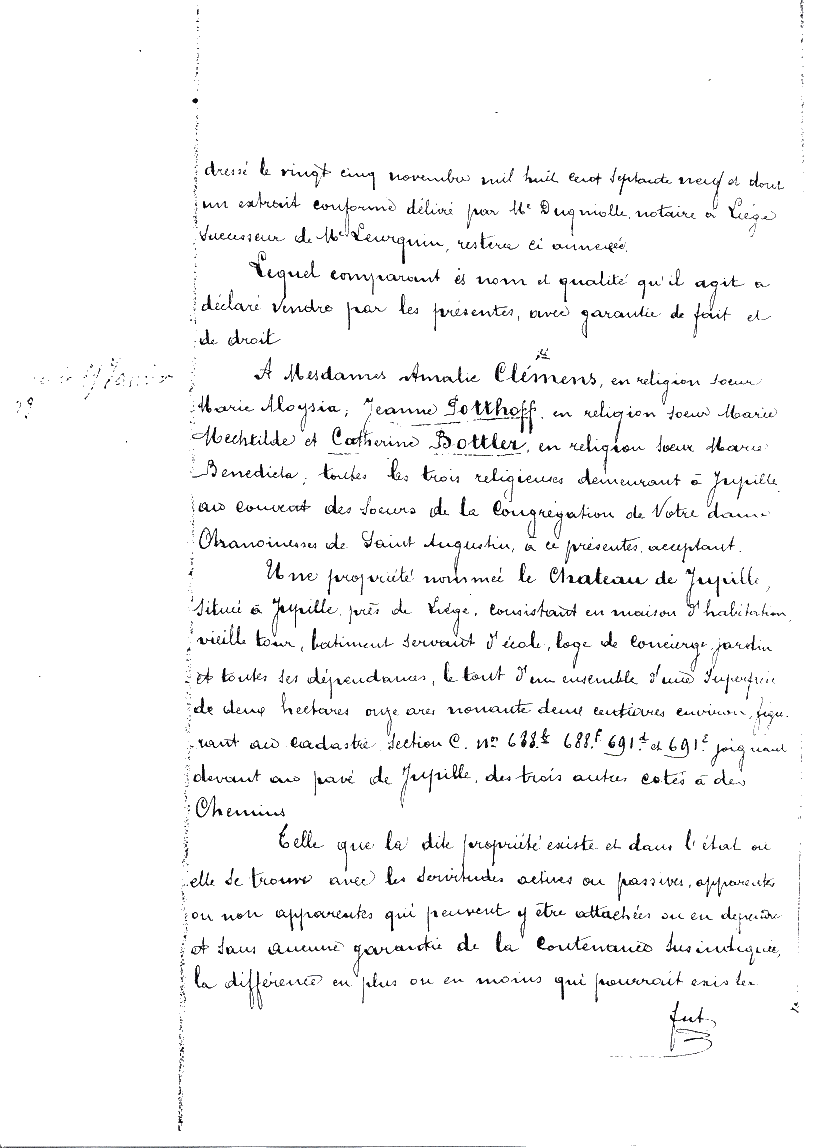 dressé le vingt cinq novembre mil huit cent septante neuf et dont
un extrait conforme délivré par Me Dugniolle, notaire à Liége
successeur de Me Leurquin, restera ci annexée.
Lequel comparant ès nom et qualité qu'il agit a
déclaré vendre par les présentes, avec garantie de fait et
de droit
A Mesdames Amalie Clémens, en religion soeur
Marie Aloysia, Jeanne Potthoff, en religion soeur Marie
Mechtilde et Catherine Bottler, en religion soeur Marie
Benedicta, toutes les trois religieuses demeurant à Jupille
au couvent des Soeurs de la Congrégation de Notre dame
Chanoinesses de Saint Augustin, à ce présentes, acceptant.
Une propriété nommée le Chateau de Jupille,
située à Jupille, près de Liége, consistant en maison d'habitation,
vieille tour, batiment servant d'école, loge de concierge, jardin
et toutes ses dépendances, le tout d'un ensemble d'une superficie
de deux hectares onze ares nonante deux centiares environ, figu-
rant au cadastre section C. nos 688 688f 691d et 691e joignant
devant au pavé de Jupille, des trois autres cotés à des
Chemins
Telle que la dite propriété existe et dans l'état ou
elle se trouve avec les servitudes actives ou passives, apparentes
ou non apparentes qui peuvent y être attachées ou en dependre
et sans aucune garantie de la contenance sus indiquée,
la différence en plus ou en moins qui pourrait exister
fut
19 Janvier